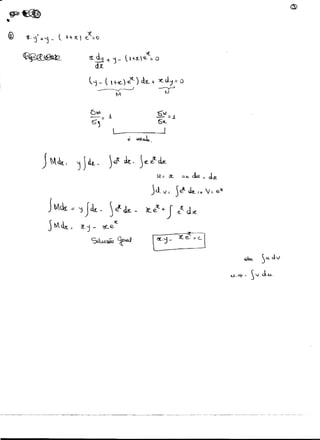 x y' + y - (1+x) e^x = 0
x dy/dx + y - (1+x) e^x = 0
(y - (1+x) e^x) dx + x dy = 0
M N
δM/δy = 1 δN/δx = 1
∫ M dx = y ∫ dx - ∫ e^x dx - ∫ x e^x dx
u = x => du = dx
∫ dv = ∫ e^x dx => v = e^x
∫ M dx = y ∫ dx - ∫ e^x dx - x e^x + ∫ e^x dx
∫ M dx = x y - x e^x
Solução Geral xy - x e^x = c
∫ u dv
u.v - ∫ v.du